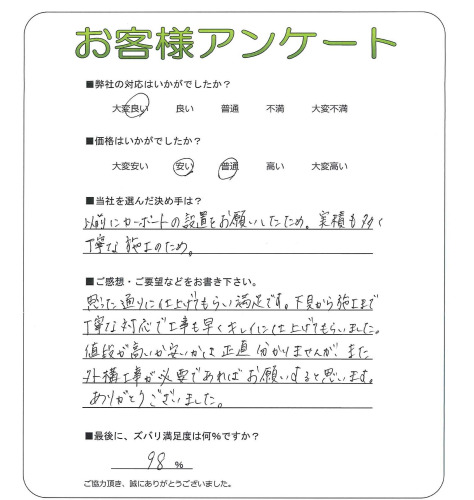 お客様アンケート
■弊社の対応はいかがでしたか？
大変良い 良い 普通 不満 大変不満
■価格はいかがでしたか？
大変安い 安い 普通 高い 大変高い
■当社を選んだ決め手は？
以前にカーポートの設置をお願いしたため。実績も多く
丁寧な施工のため。
■ご感想・ご要望などをお書き下さい。
思った通りに仕上げてもらい満足です。下見から施工まで
丁寧な対応で工事も早くキレイに仕上げてもらいました。
値段が高いか安いかは正直分かりませんが、また
外構工事が必要であればお願いすると思います。
ありがとうございました。
■最後に、ズバリ満足度は何%ですか？
98 %
ご協力頂き、誠にありがとうございました。